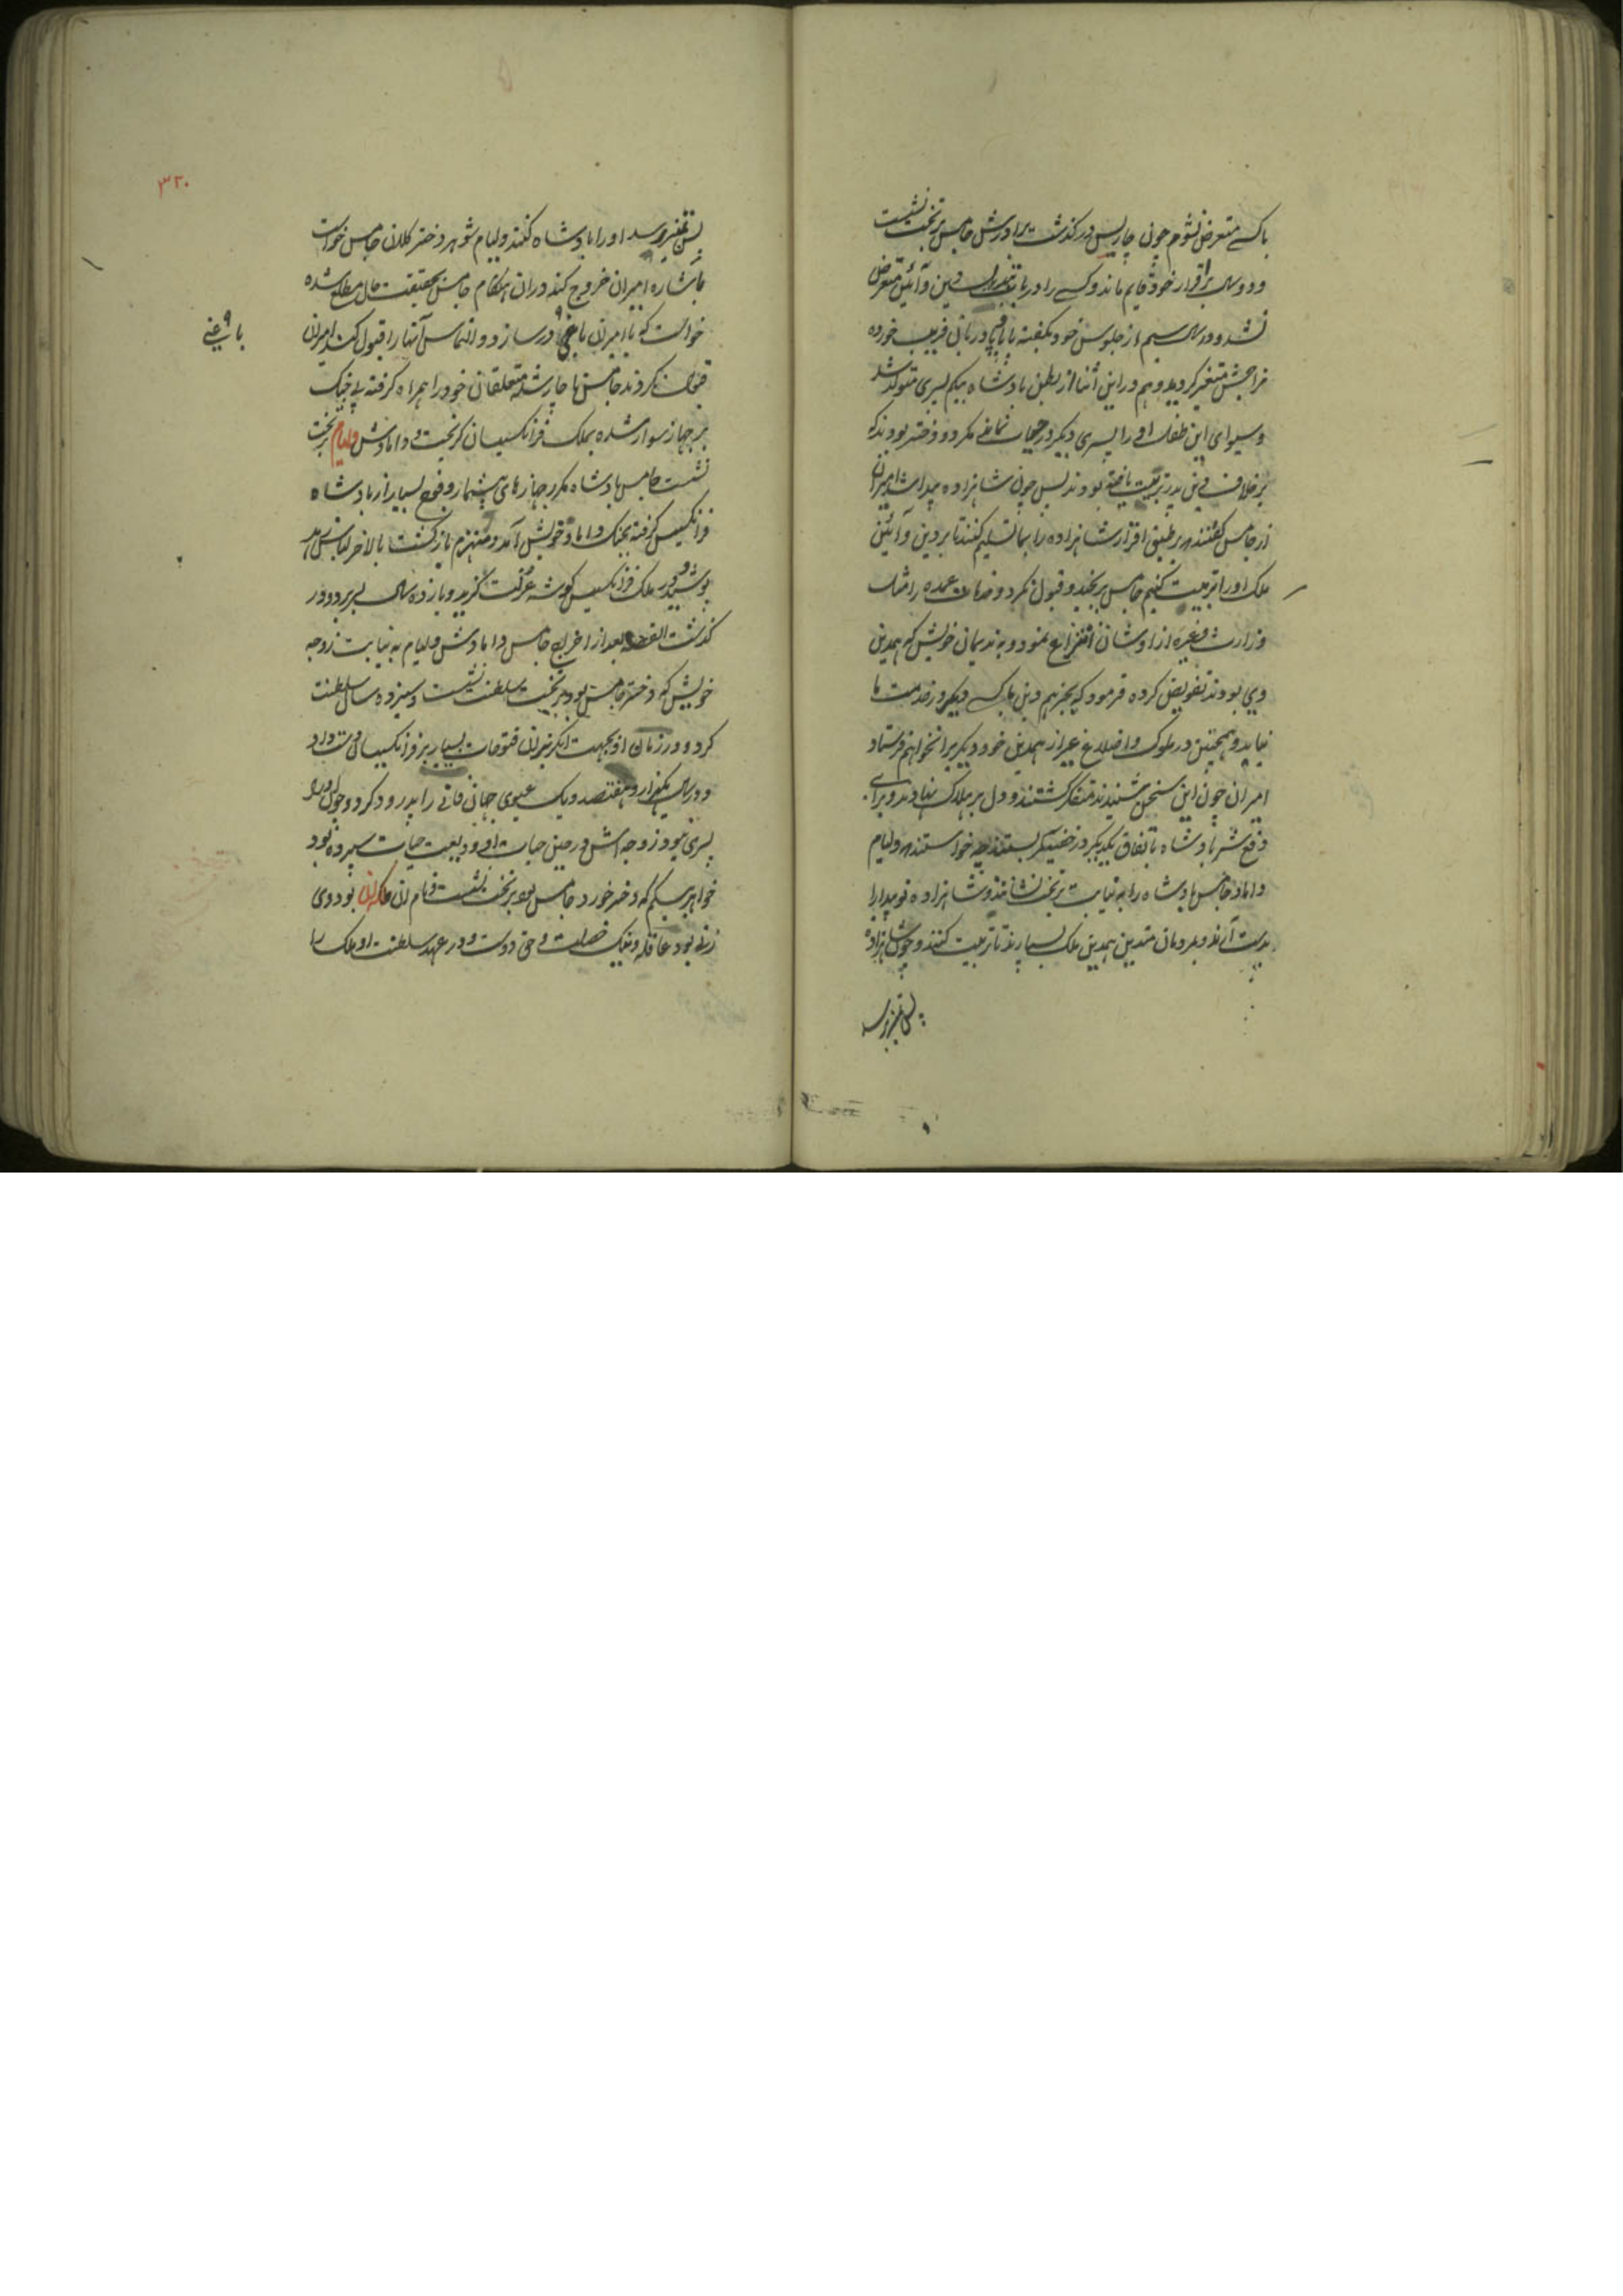 باکسے متعرض نشوم چون چارلیس درگذشت برادرش جامس بر تخت نشست
و دو سال بر اقرار خود قایم ماند و کسے را در باب تبدیل دین و آئین متعرض
نشد و در سال سیم از جلوس خود بگفته بابا و پادریان فریب خورده
مزاجش متغیر گردید و هم در این اثنا از بطن بادشاه بیگم پسری متولد شد
و سوای این طفل او را پسری دیگر در جهان نمانده مگر دو دختر بودند که
بر خلاف دین پدر تربیت یافته بودند پس چون شاهزاده پیدا شد امیران
از جامس گفتند که بر طبق اقرار شاهزاده را بما تسلیم کنند تا بر دین و آئین
ملک او را تربیت کنیم جامس برنجید و قبول نکرد و خدمات عمده را مثل
وزارت و غیره از اوشان انتزاع نمود و به ندیمان خویش که همدین
وی بودند تفویض کرده فرمود که بجز هم دین ما کسے دیگر در خدمت ما
نیاید و همچنین در ملوک و اضلاع غیر از همدین خود دیگریرا نخواهم فرستاد
امیران چون این سخن شنیدند متفکر گشتند و دل بر هلاک نهادند و برای
دفع شر بادشاه باتفاق یکدیگر در خفیه کمر بستند و خواستند که ولیام
داماد جامس بادشاه را به نیابت بر تخت نشانند و شاهزاده نوپیدا را
بدست آرند و بمردمان متدین همدین ملک بسپارند تا تربیت کنند و چون شاهزاده
بسن تمیز رسد
۳۲۰
بسن تمیز برسد او را بادشاه کنند ولیام شوهر دختر کلان جامس خواست
باشاره امیران خروج کند در ان هنگام جامس بحقیقت حال مطلع شده
خواست که با امیران باغی در سازد و التماس آنها را قبول کند امیران
باغی
قبول نکردند جامس ناچار شده متعلقان خود را همراه گرفته بے جنگ
بر جهاز سوار شده بملک فرانکسیسان گریخت و دامادش ولیام بر تخت
نشست جامس بادشاه مکرر جهازهای بیشمار و فوج بسیار از بادشاه
فرانکسیس گرفته بجنگ داماد خویش آمد و منهزم بازگشت بالاخر لباس زهد
پوشیده در ملک فرانکسیس گوشه عزلت گزید و یازده سال بسر برد و در
گذشت القصه بعد از اخراج جامس دامادش ولیام به نیابت زوجه
خویش که دختر جامس بود بر تخت سلطنت نشست و سیزده سال سلطنت
کرد و در زمان او بجهت انگریزان فتوحات بسیار بر فرانکسیسان دست داد
و در سال یکهزار و هفتصد و یک عیسوی جهان فانی را پدرود کرد و چون ویرا
پسری نبود زوجه اش در حین حیات او ودیعت حیات سپرده بود
خواهر بیگم که دختر خورد جامس بود بر تخت نشست و نام ان ملکه ان بود وی
زنے بود عاقله و نیک خصلت و حق دوست و در عهد سلطنت او ملک را